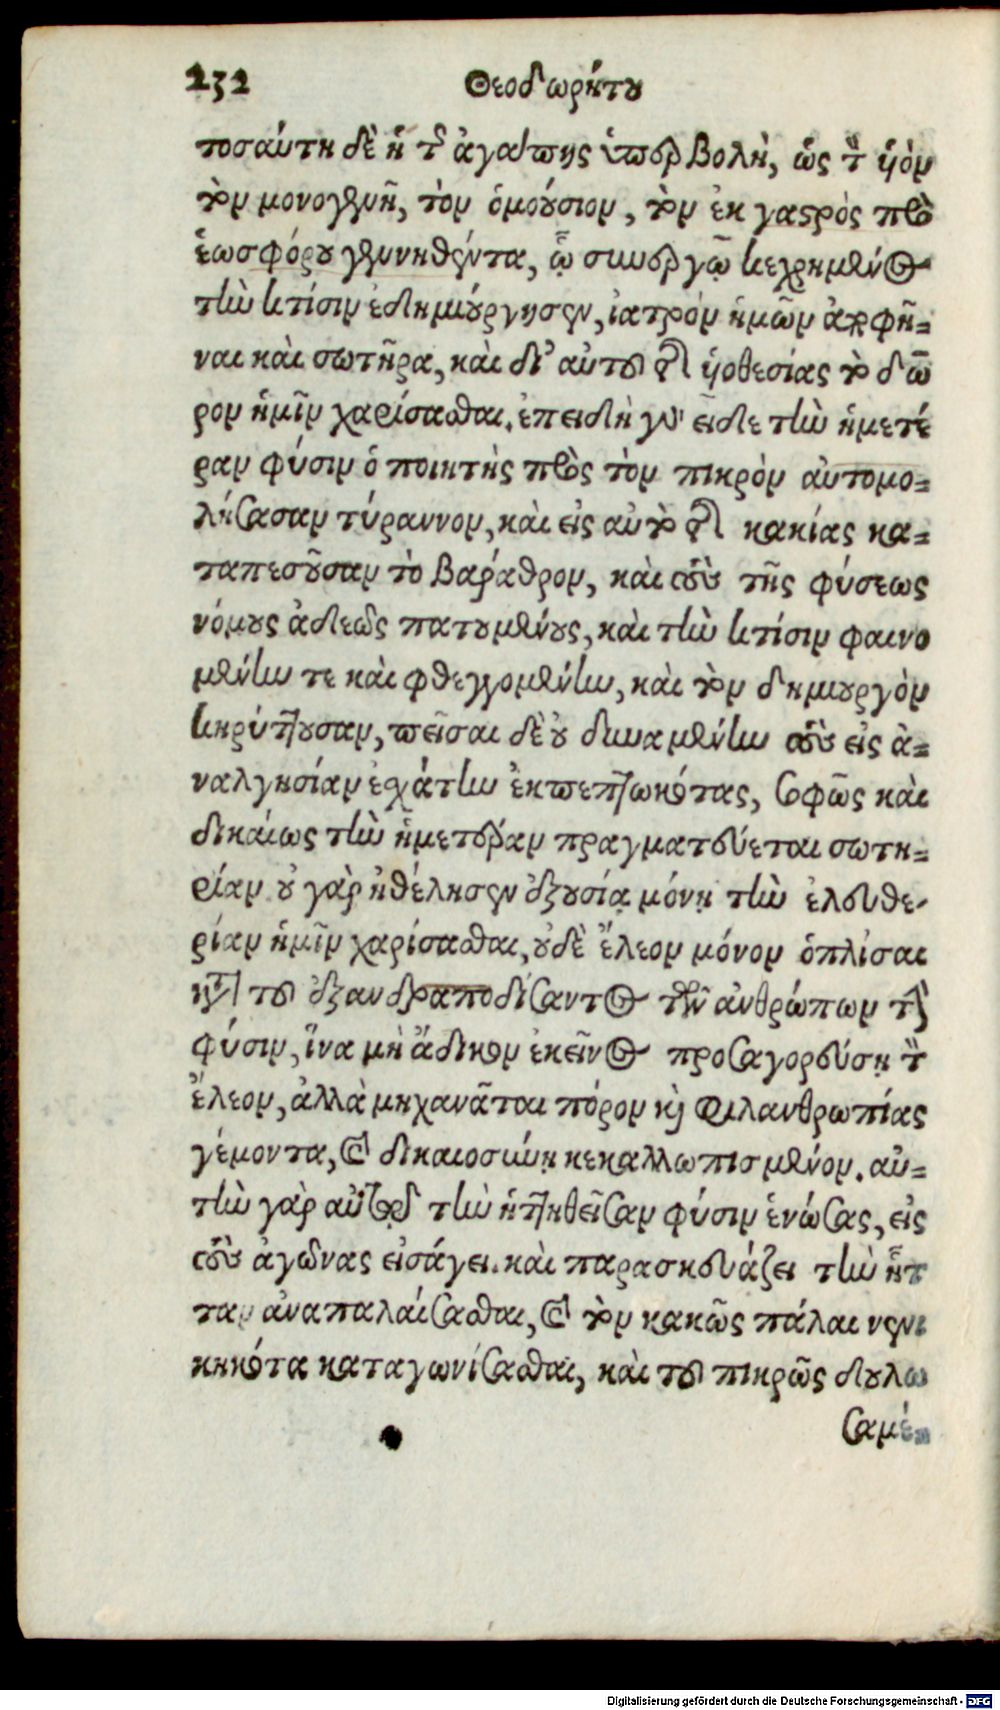 232 Θεοδωρήτου
τοσαύτη δὲ ἡ τῆς ἀγάπης ὑπερβολὴ, ὡς τὸν υἱὸν
τὸν μονογενῆ, τὸν ὁμοούσιον, τὸν ἐκ γαστρὸς πρὸ
ἑωσφόρου γεννηθέντα, ᾧ συνεργῷ κεχρημένος
τὴν κτίσιν ἐδημιούργησεν, ἰατρὸν ἡμῶν ἀποφῆ-
ναι καὶ σωτῆρα, καὶ δι' αὐτοῦ τῆς υἱοθεσίας τὸ δῶ
ρον ἡμῖν χαρίσασθαι. ἐπειδὴ γὰρ εἶδε τὴν ἡμετέ
ραν φύσιν ὁ ποιητὴς πρὸς τὸν πικρὸν αὐτομο-
λήσασαν τύραννον, καὶ εἰς αὐτὸ τῆς κακίας κα-
ταπεσοῦσαν τὸ βάραθρον, καὶ τοὺς τῆς φύσεως
νόμους ἀδεῶς πατουμένους, καὶ τὴν κτίσιν φαινο
μένην τε καὶ φθεγγομένην, καὶ τὸν δημιουργὸν
κηρύττουσαν, πεῖσαι δὲ οὐ δυναμένην τοὺς εἰς ἀ-
ναλγησίαν ἐσχάτην ἐκπεπτωκότας, σοφῶς καὶ
δικαίως τὴν ἡμετέραν πραγματεύεται σωτη-
ρίαν οὐ γὰρ ἠθέλησεν ἐξουσίᾳ μόνῃ τὴν ἐλευθε-
ρίαν ἡμῖν χαρίσασθαι, οὐδὲ ἔλεον μόνον ὁπλίσαι
κατὰ τοῦ ἐξανδραποδίσαντος τῶν ἀνθρώπων τὴν
φύσιν, ἵνα μὴ ἄδικον ἐκεῖνος προσαγορεύσῃ τὸν
ἔλεον, ἀλλὰ μηχανᾶται πόρον καὶ φιλανθρωπίας
γέμοντα, καὶ δικαιοσύνῃ κεκαλλωπισμένον. αὐ-
τὴν γὰρ αὑτῷ τὴν ἡττηθεῖσαν φύσιν ἑνώσας, εἰς
τοὺς ἀγῶνας εἰσάγει. καὶ παρασκευάζει τὴν ἧτ
ταν ἀναπαλαίσασθαι, καὶ τὸν κακῶς πάλαι νενι
κηκότα καταγωνίσασθαι, καὶ τοῦ πικρῶς δουλω
σαμέ-
Digitalisierung gefördert durch die Deutsche Forschungsgemeinschaft - DFG